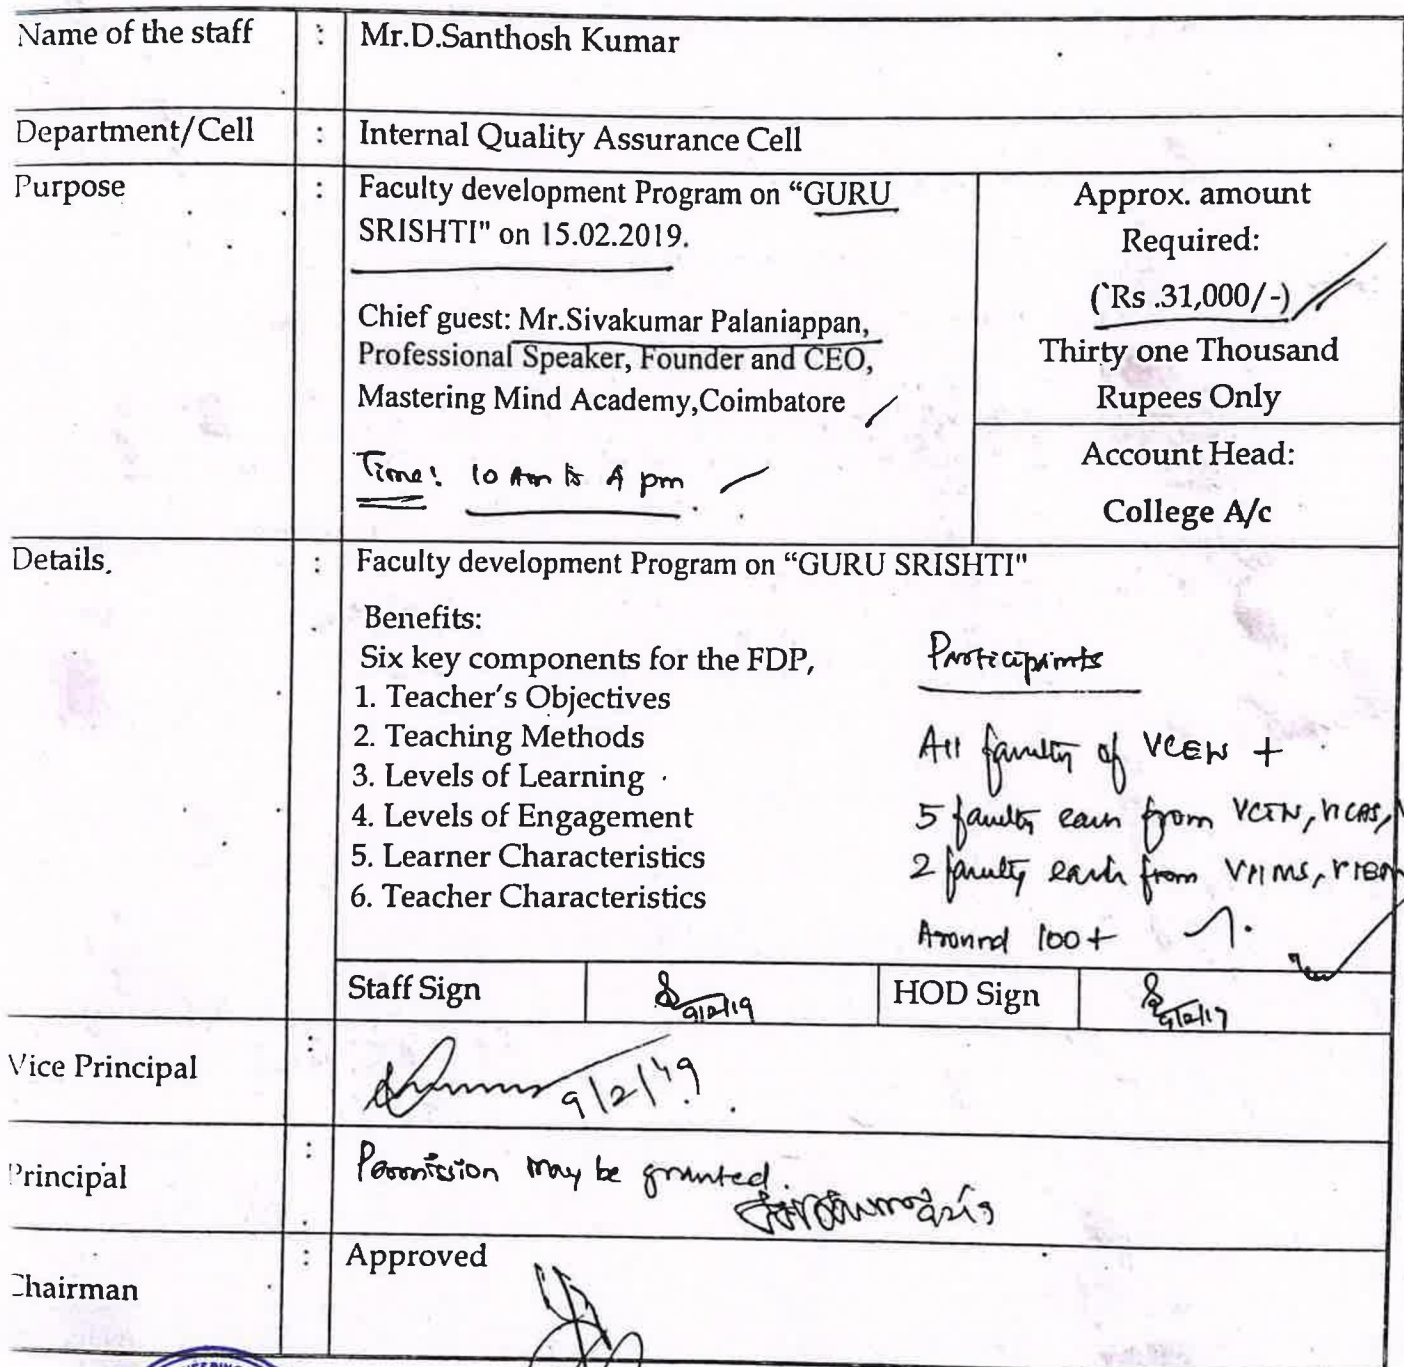 Name of the staff : Mr.D.Santhosh Kumar
Department/Cell : Internal Quality Assurance Cell
Purpose : Faculty development Program on “GURU
SRISHTI" on 15.02.2019.
Chief guest: Mr.Sivakumar Palaniappan,
Professional Speaker, Founder and CEO,
Mastering Mind Academy,Coimbatore
Time: 10 Am to 4 pm.
Approx. amount
Required:
(`Rs .31,000/-)
Thirty one Thousand
Rupees Only
Account Head:
College A/c
Details. : Faculty development Program on “GURU SRISHTI"
Benefits:
Six key components for the FDP,
1. Teacher’s Objectives
2. Teaching Methods
3. Levels of Learning
4. Levels of Engagement
5. Learner Characteristics
6. Teacher Characteristics
Participants
All faculty of VCEW +
5 faculty each from
2 faculty each from
Around 100+
Staff Sign 9/2/19 HOD Sign 9/2/19
Vice Principal : 9/2/19.
Principal : Permission may be granted.
Chairman : Approved